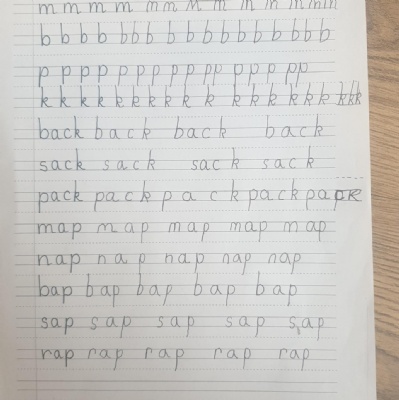 m m m m m m m m m m m m m m
b b b b b b b b b b b b b b b b
p p p p p p p p p p p p p p p p
k k k k k k k k k k k k k k k k k k k
back back back back
sack sack sack sack
pack pack pack pack pack
map map map map map
nap nap nap nap nap
bap bap bap bap bap
sap sap sap sap sap
rap rap rap rap rap